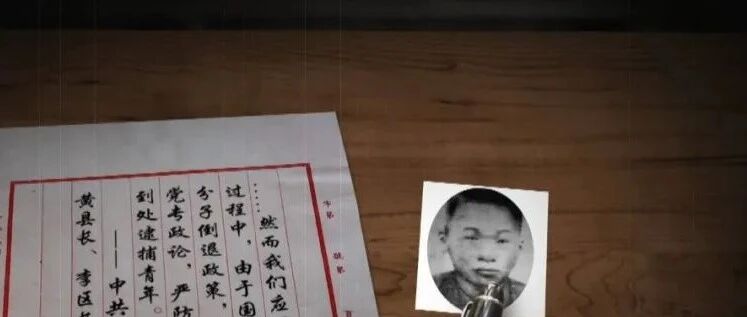 ……然而我们应
过程中，由于国
分子倒退政策，
党专政论，严防
到处逮捕青年。
——中共
黄县长、李区